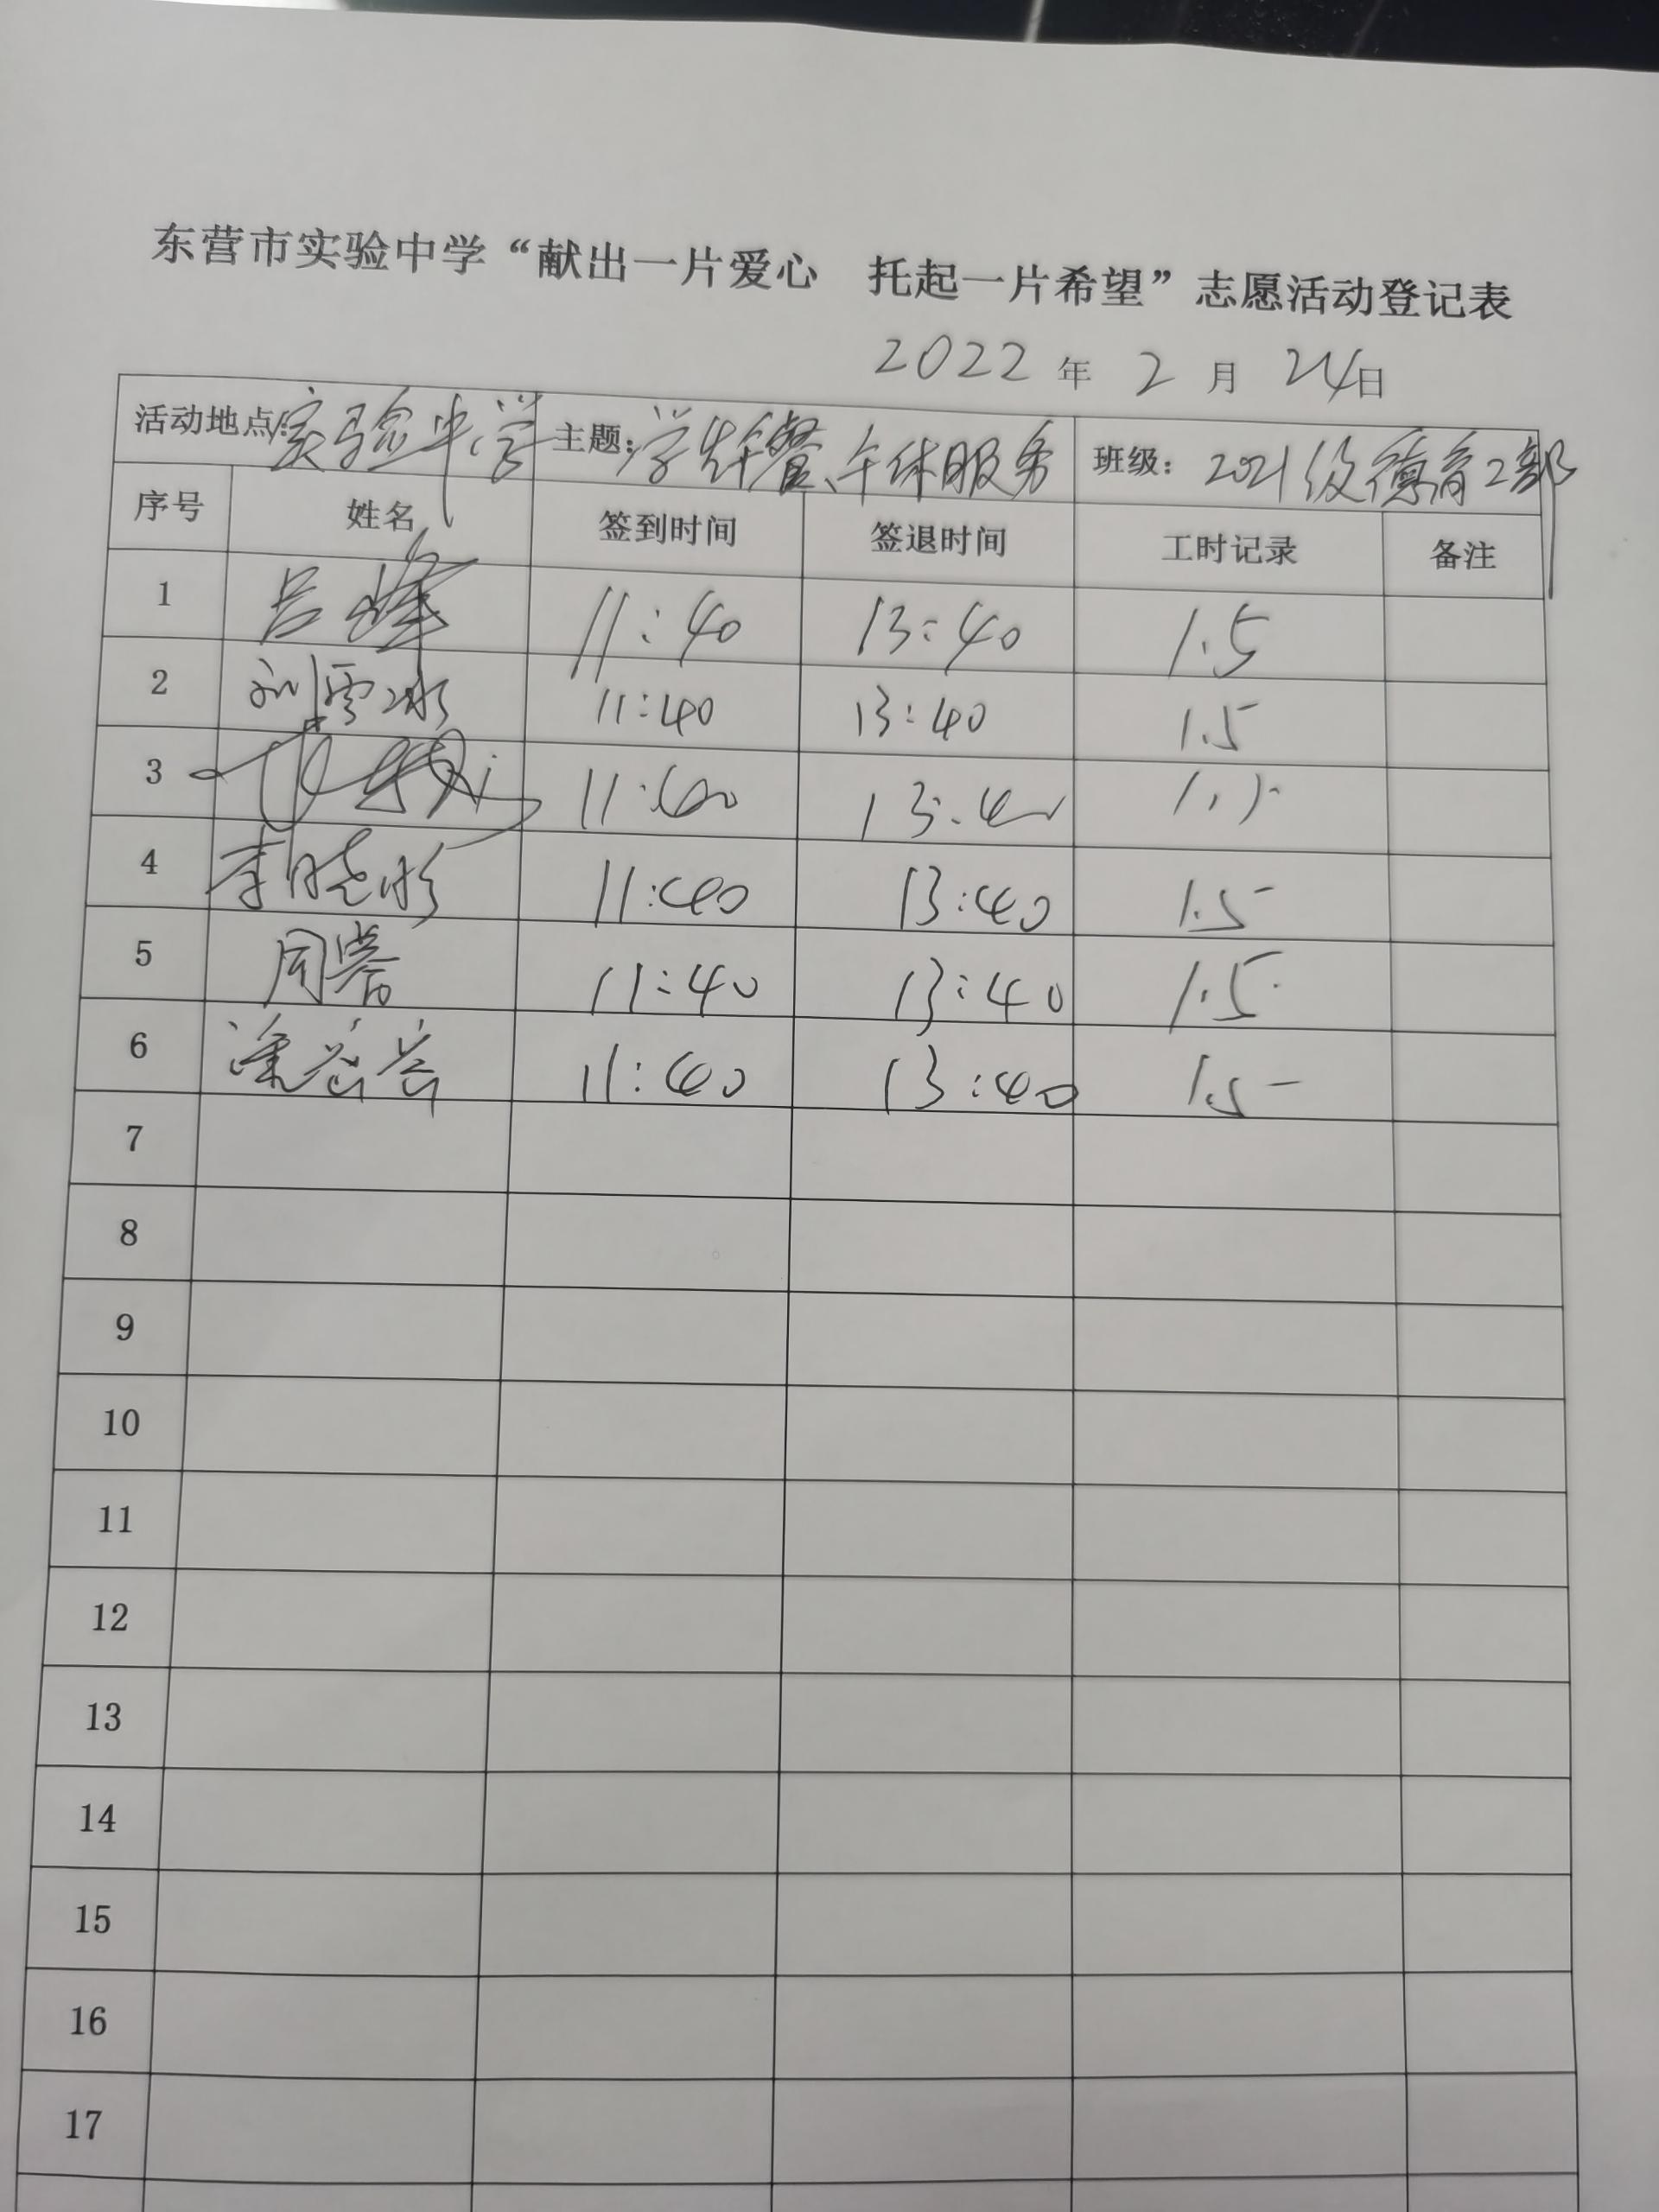 东营市实验中学“献出一片爱心 托起一片希望”志愿活动登记表
2022 年 2 月 24日
活动地点：实验中学 主题：学生午餐、午休服务 班级：2021级德育2部
序号 姓名 签到时间 签退时间 工时记录 备注
1 吕峰 11:40 13:40 1.5
2 刘雪冰 11:40 13:40 1.5
3 11:40 13:40 1.5
4 李晓彤 11:40 13:40 1.5
5 周誉 11:40 13:40 1.5
6 11:40 13:40 1.5
7
8
9
10
11
12
13
14
15
16
17